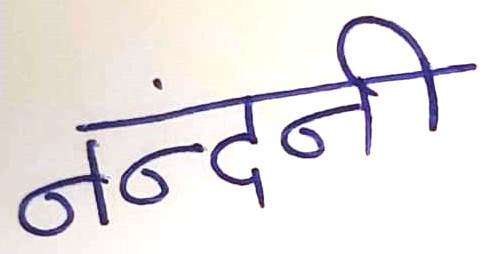 नंन्दनी